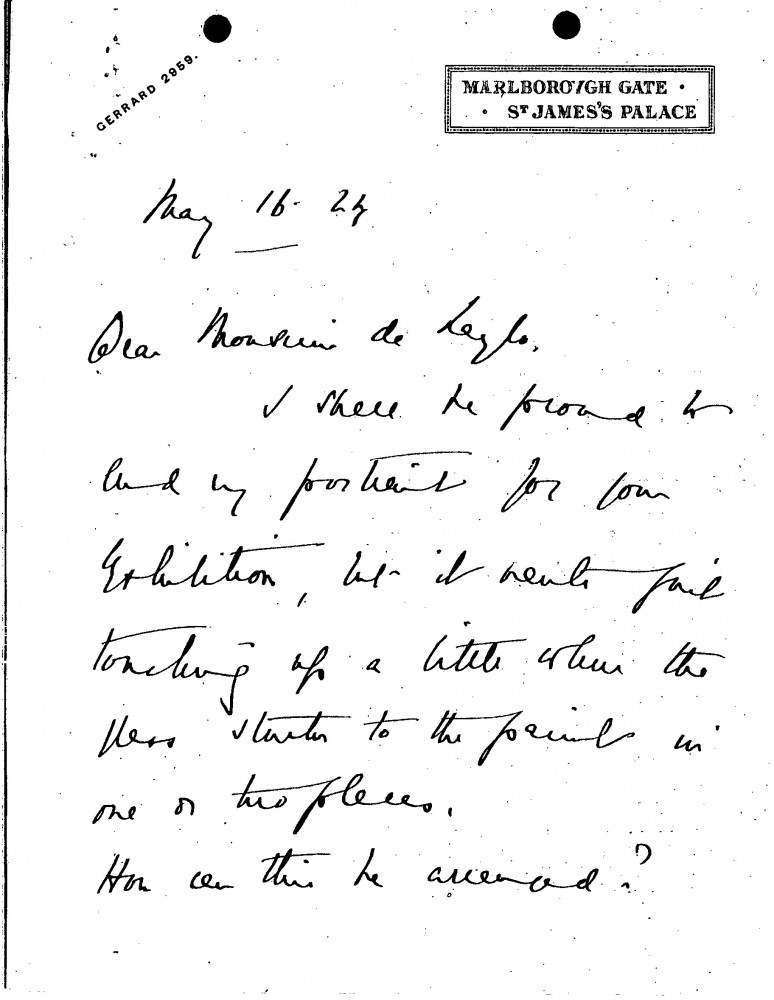 GERRARD 2959.
MARLBOROUGH GATE ·
· ST JAMES'S PALACE
May 16. 24
Dear Monsieur de Laszlo,
I shall be proud to
lend my portrait for your
Exhibition, but it wants just
touching up a little where the
glass stuck to the paint in
one or two places.
How can this be arranged?